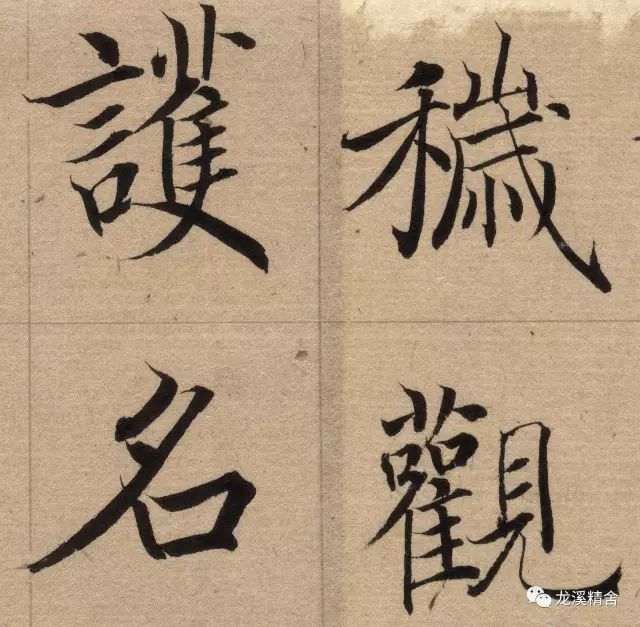 穢觀
護名
龙溪精舍